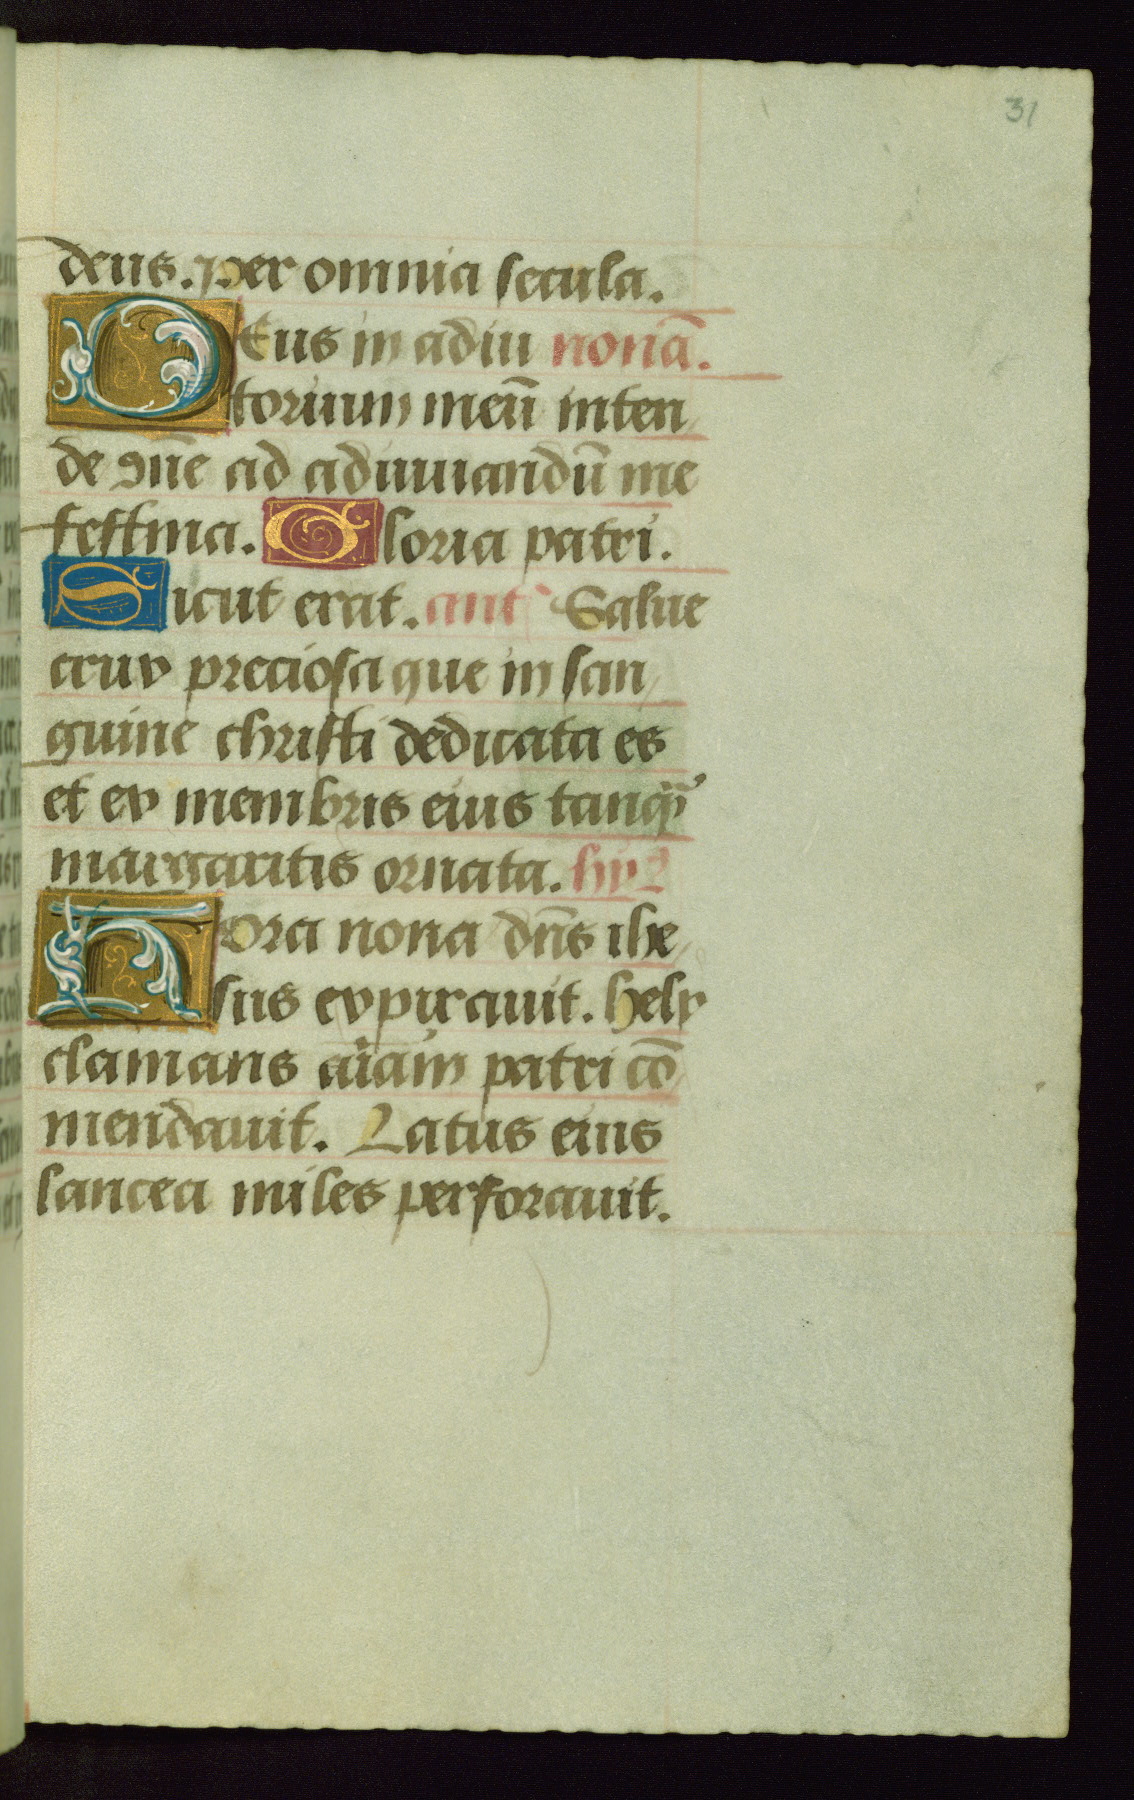 31
deus. per omnia secula.
Deus in adiu nonā.
torium meū inten
de Dn̄e ad adiuuandū me
festina. Gloria patri.
Sicut erat. ant Salue
crux preciosa que in san
guine christi dedicata es
et ex membris eius tanq̄
margaritis ornata. hy
Hora nona dn̄s ihe
sus expirauit. hely
clamans aīam patri cō
mendauit. Latus eius
lancea miles perforauit.